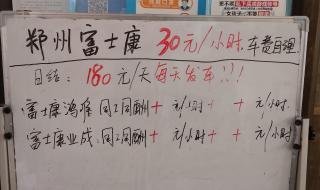 郑州富士康 30元/小时.车费自理
日结：180元/天 每天发车!!!
富士康鸿 同工同酬+ 元/小时+ + 元/小时.
富士康业成：同工同酬+ 元/小时+ + 元/小时